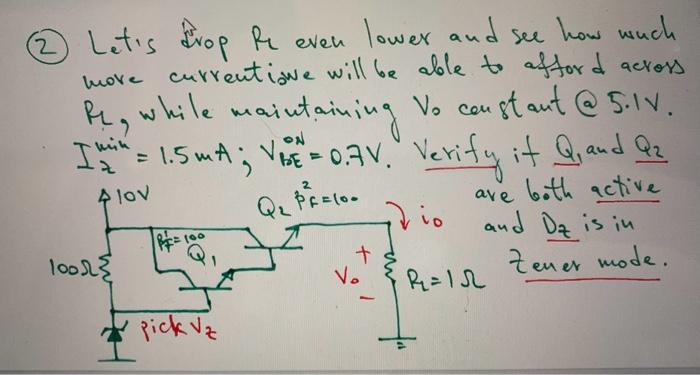 ② Let's drop RL even lower and see how much
more current iowe will be able to afford across
RL, while maintaining Vo constant @ 5.1V.
Iz^min = 1.5mA; VBE^ON = 0.7V. Verify if Q1 and Q2
are both active
and Dz is in
Zener mode.
10V
Q2 βF^2=100
io
βF^1=100
Q1
100Ω
+
Vo
-
RL=1Ω
pick Vz